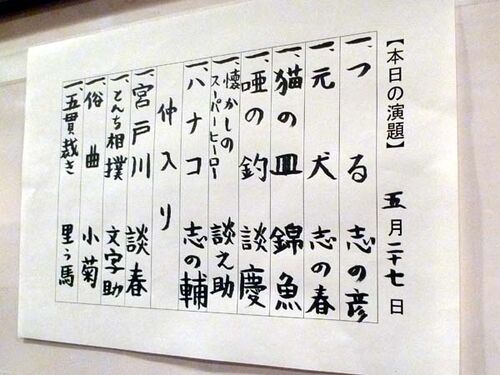 【本日の演題】 五月二十七日
一、つる 志の彦
一、元犬 志の春
一、猫の皿 錦魚
一、唖の釣 談慶
一、懐かしのスーパーヒーロー 談之助
一、ハナコ 志の輔
仲入り
一、宮戸川 談春
一、とんち相撲 文字助
一、俗曲 小菊
一、五貫裁き 里う馬